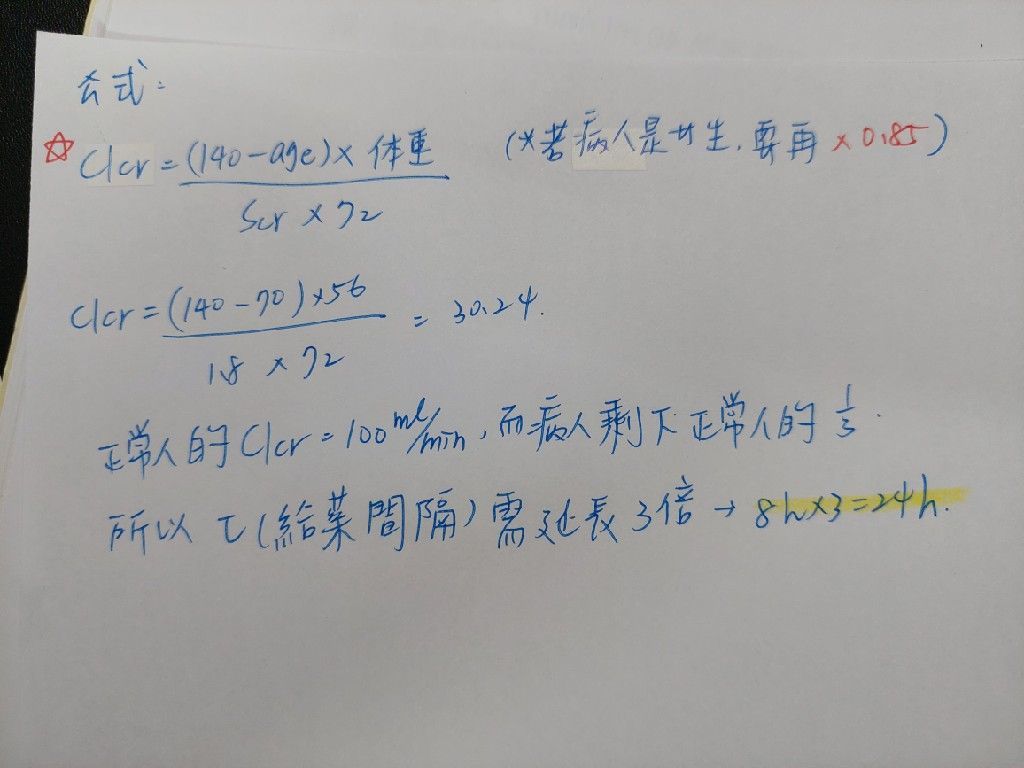 公式:
☆ Clcr = (140-age) × 体重 / Scr × 72 (*若病人是女生, 要再 × 0.85)
Clcr = (140-70) × 56 / 1.8 × 72 = 30.24.
正常人的 Clcr = 100 ml/min, 而病人剩下正常人的 1/3.
所以 τ (給葯間隔) 需延長 3倍 → 8h×3=24h.